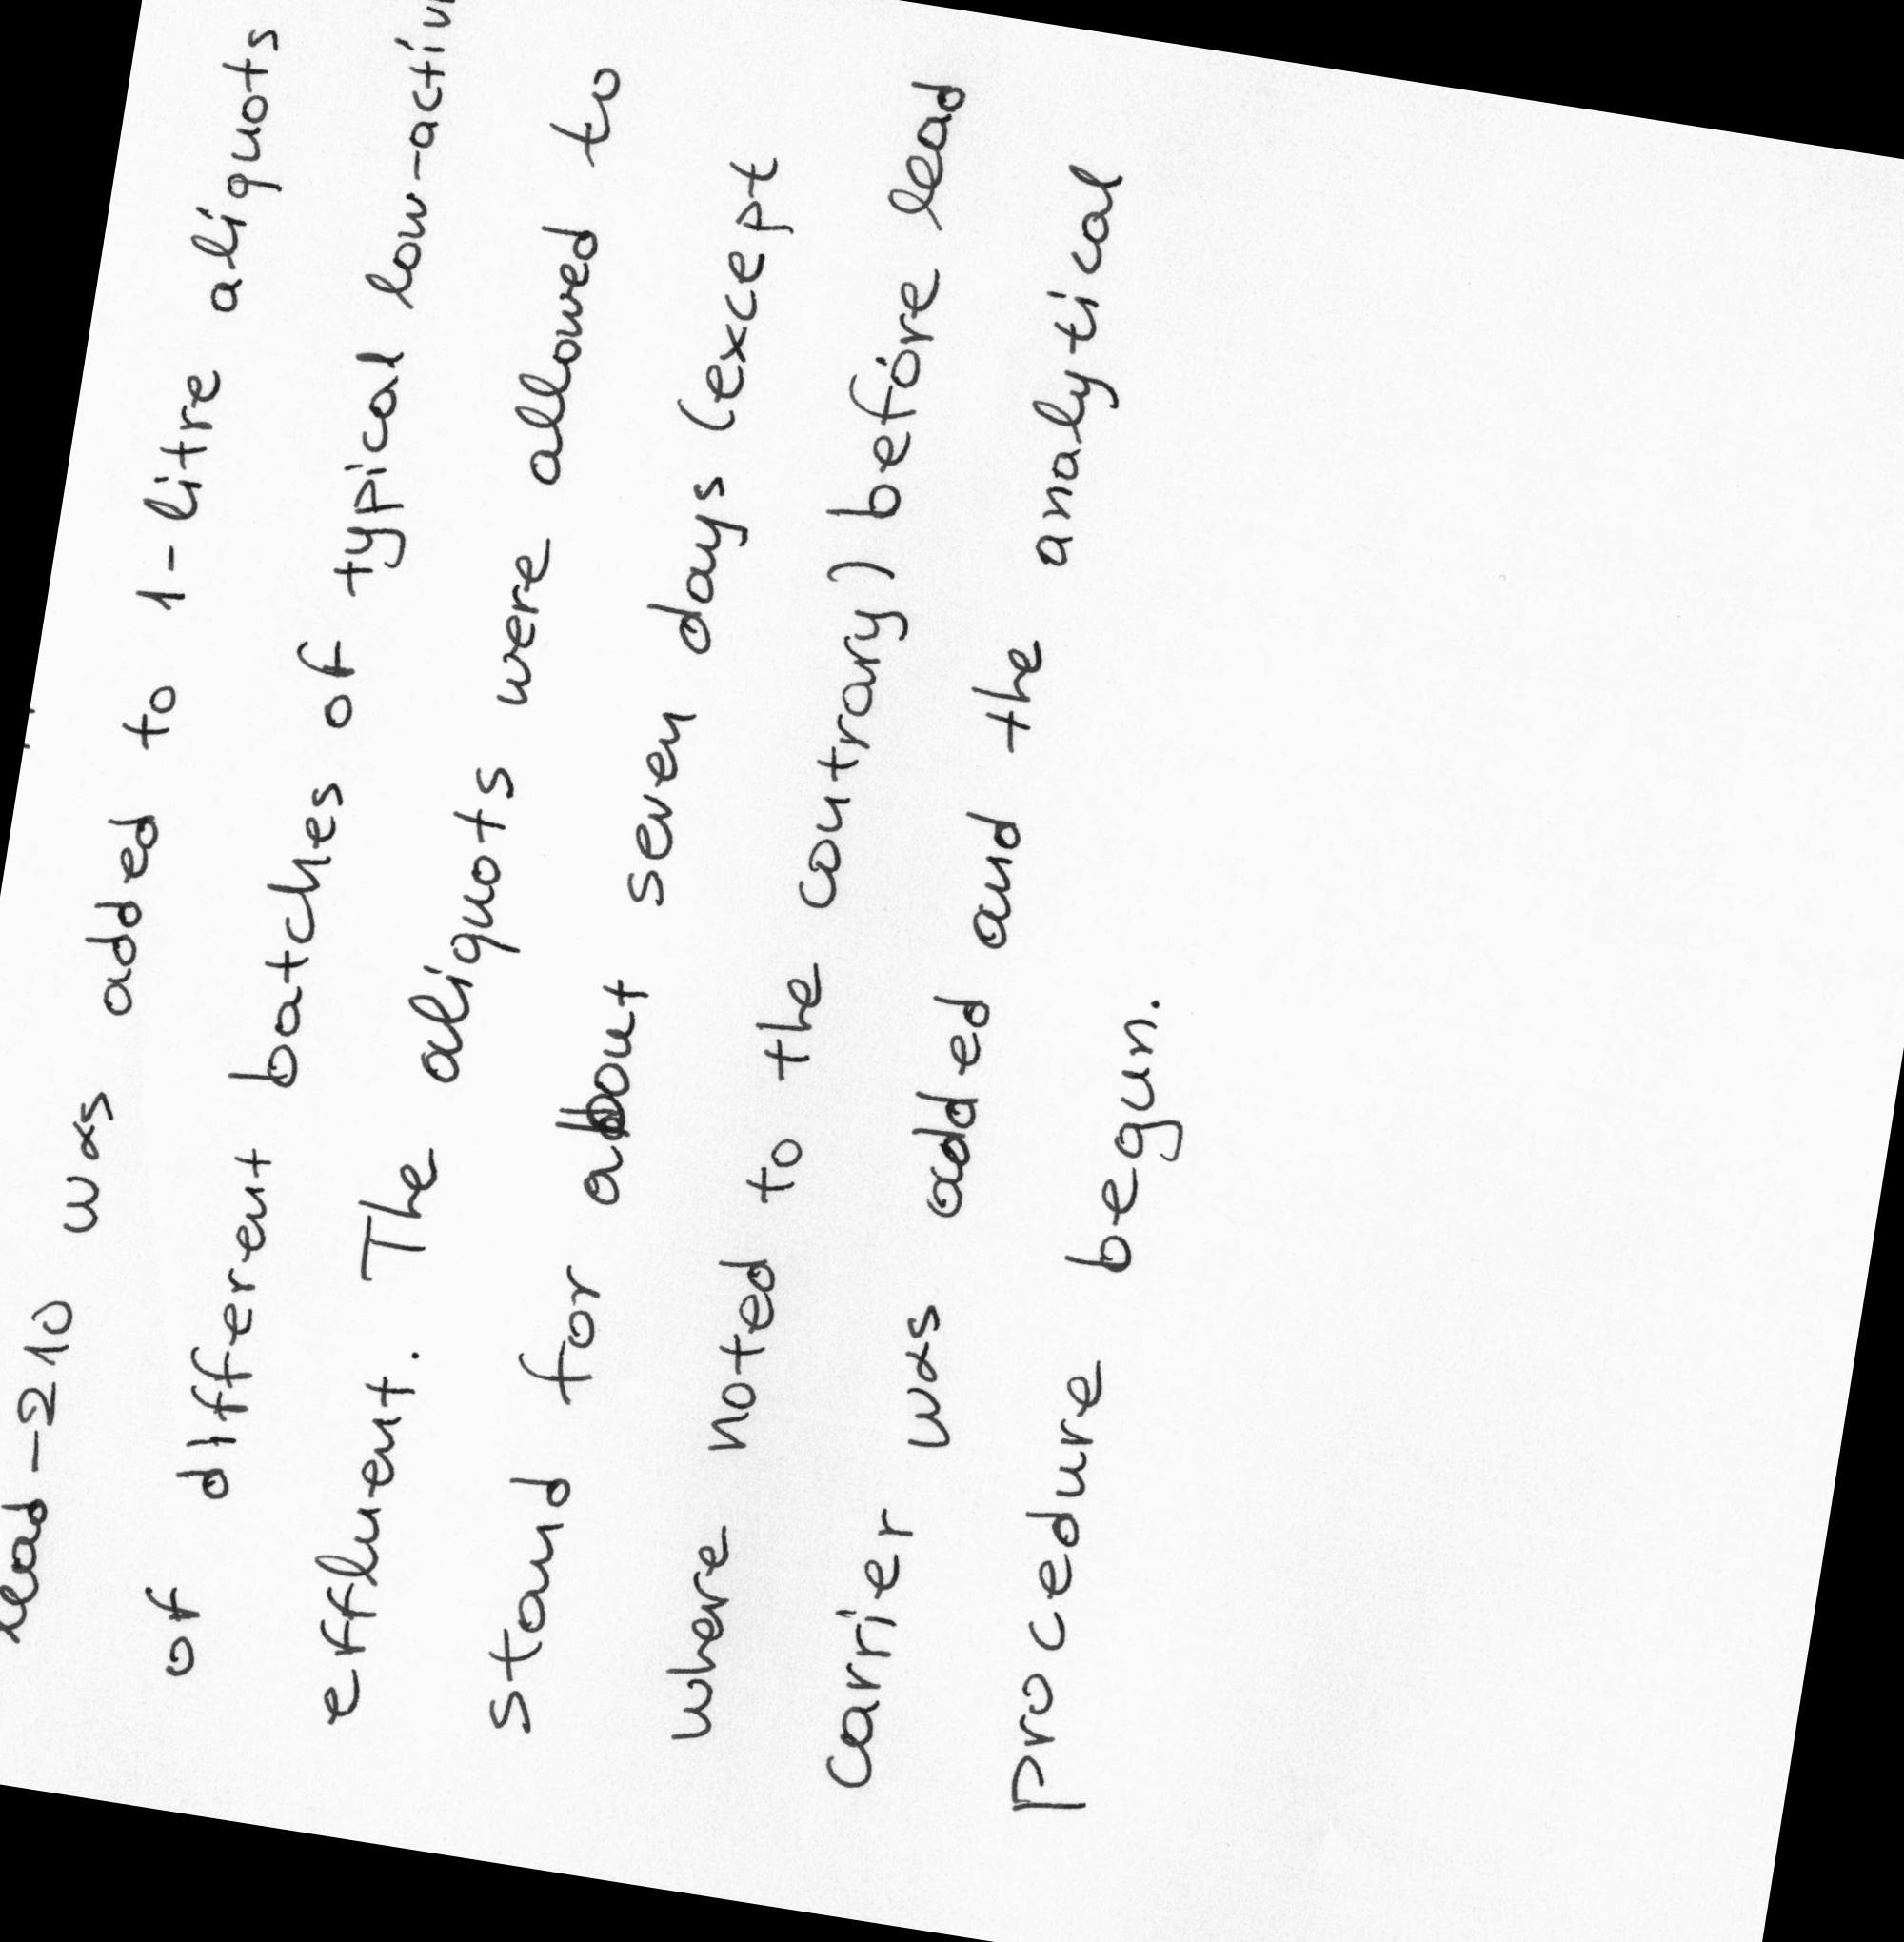 lead-210 was added to 1-litre aliquots
of different batches of typical
effluent. The aliquots were allowed to
stand for about seven days (except
where noted to the contrary) before lead
carrier was added and the analytical
procedure begun.